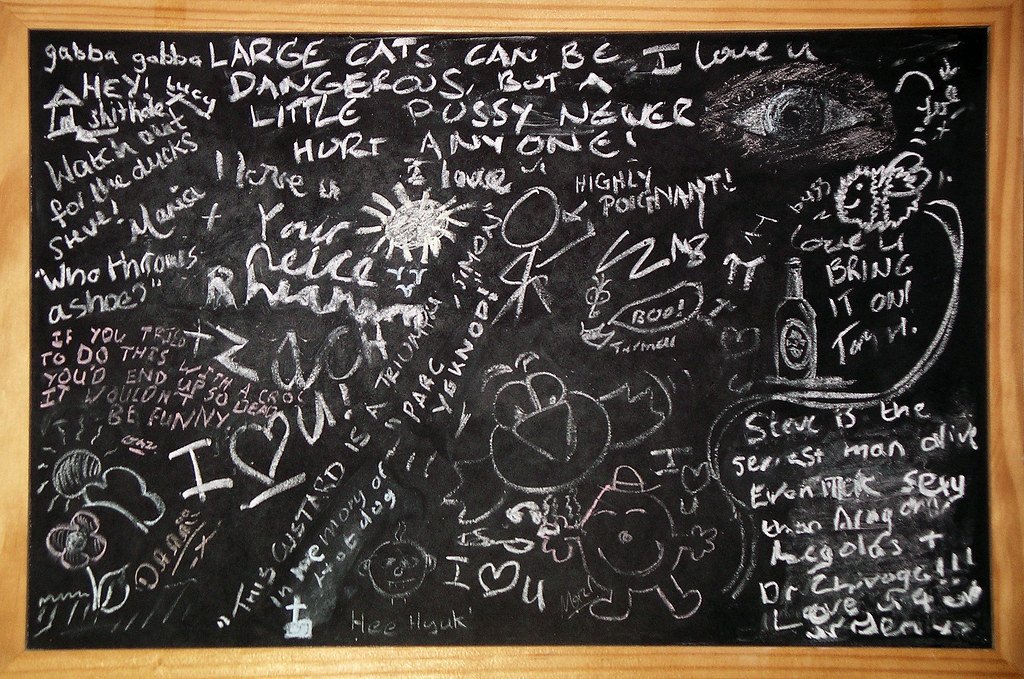 gabba gabba
HEY!
Lucy
shithole
LARGE CATS CAN BE
DANGEROUS, BUT A
LITTLE PUSSY NEVER
HURT ANYONE!
I love u
Watch out
for the ducks
Steve!
Marica
I love u
I love u
+
Your
Neice
Rhiannon
HIGHLY
POIGNANT!
"Who throws
a shoe?"
IF YOU TRIED
TO DO THIS WITH A CROC
YOU'D END UP DEAD
IT WOULDN'T SO
BE FUNNY
+ ZACH
I ♥ U!
"THIS CUSTARD IS A TRIUMPH" - SIMON
"PARC
YGKNOD!"
In memory of
Hot dog
BOO!
Turmell
love u
BRING
IT ON!
Tay H.
Steve is the
sexiest man alive
Even MCK sexy
than Aragorn
Legolas +
Dr Chivago!!!
Love
I ♥
I ♥ U
Hee Hyuk